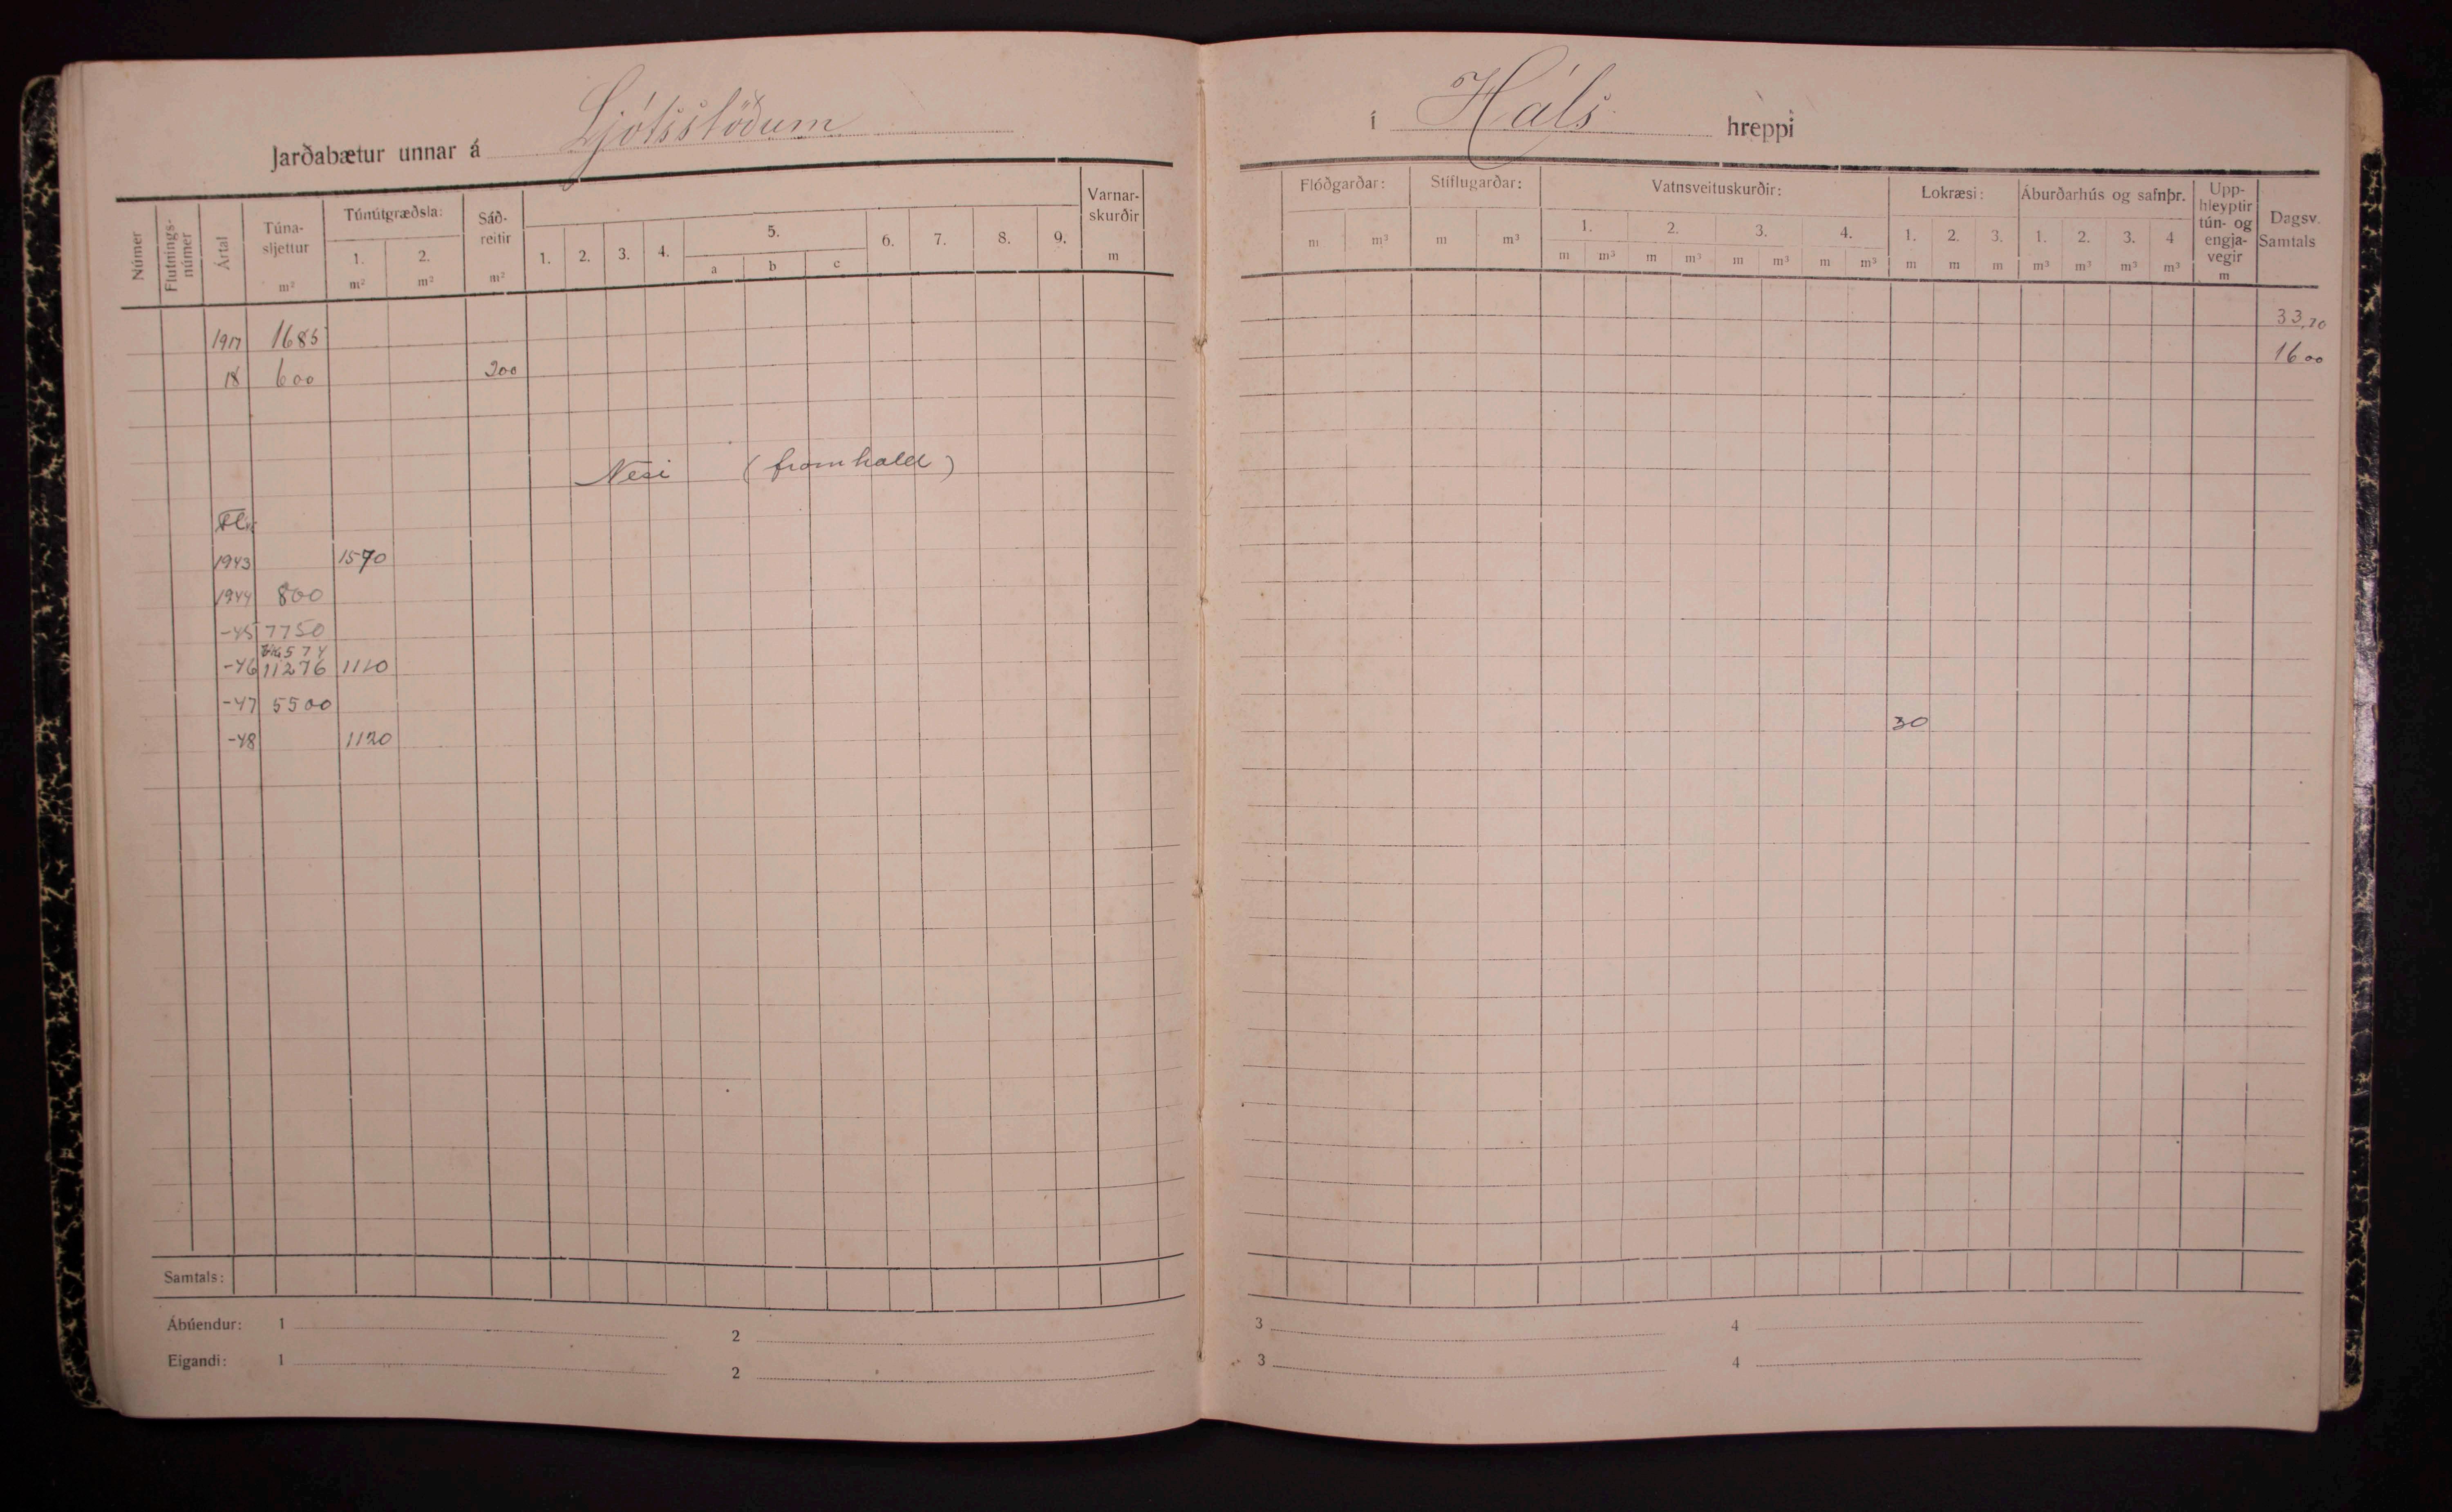 Jarðabætur unnar á Ljótsstöðum
í Háls hreppi
Númer Flutnings-númer Ártal Túna-sljettur m² Túnútgræðsla: 1. m² 2. m² Sáð-reitir m² 1. 2. 3. 4. 5. a b c 6. 7. 8. 9. Varnar-skurðir m
Flóðgarðar: m m³ Stíflugarðar: m m³ Vatnsveituskurðir: 1. m m³ 2. m m³ 3. m m³ 4. m m³ Lokræsi: 1. m 2. m 3. m Áburðarhús og safnþr. 1. m³ 2. m³ 3. m³ 4 m³ Upp-hleyptir tún- og engja-vegir m Dagsv. Samtals
1917 1685 33,70
18 600 200 16 00
Nesi (framhald)
1943 1570
1944 800
-45 7750
574
-46 11276 1110
-47 5500
-48 1120 30
Samtals:
Ábúendur: 1 2 3 4
Eigandi: 1 2 3 4